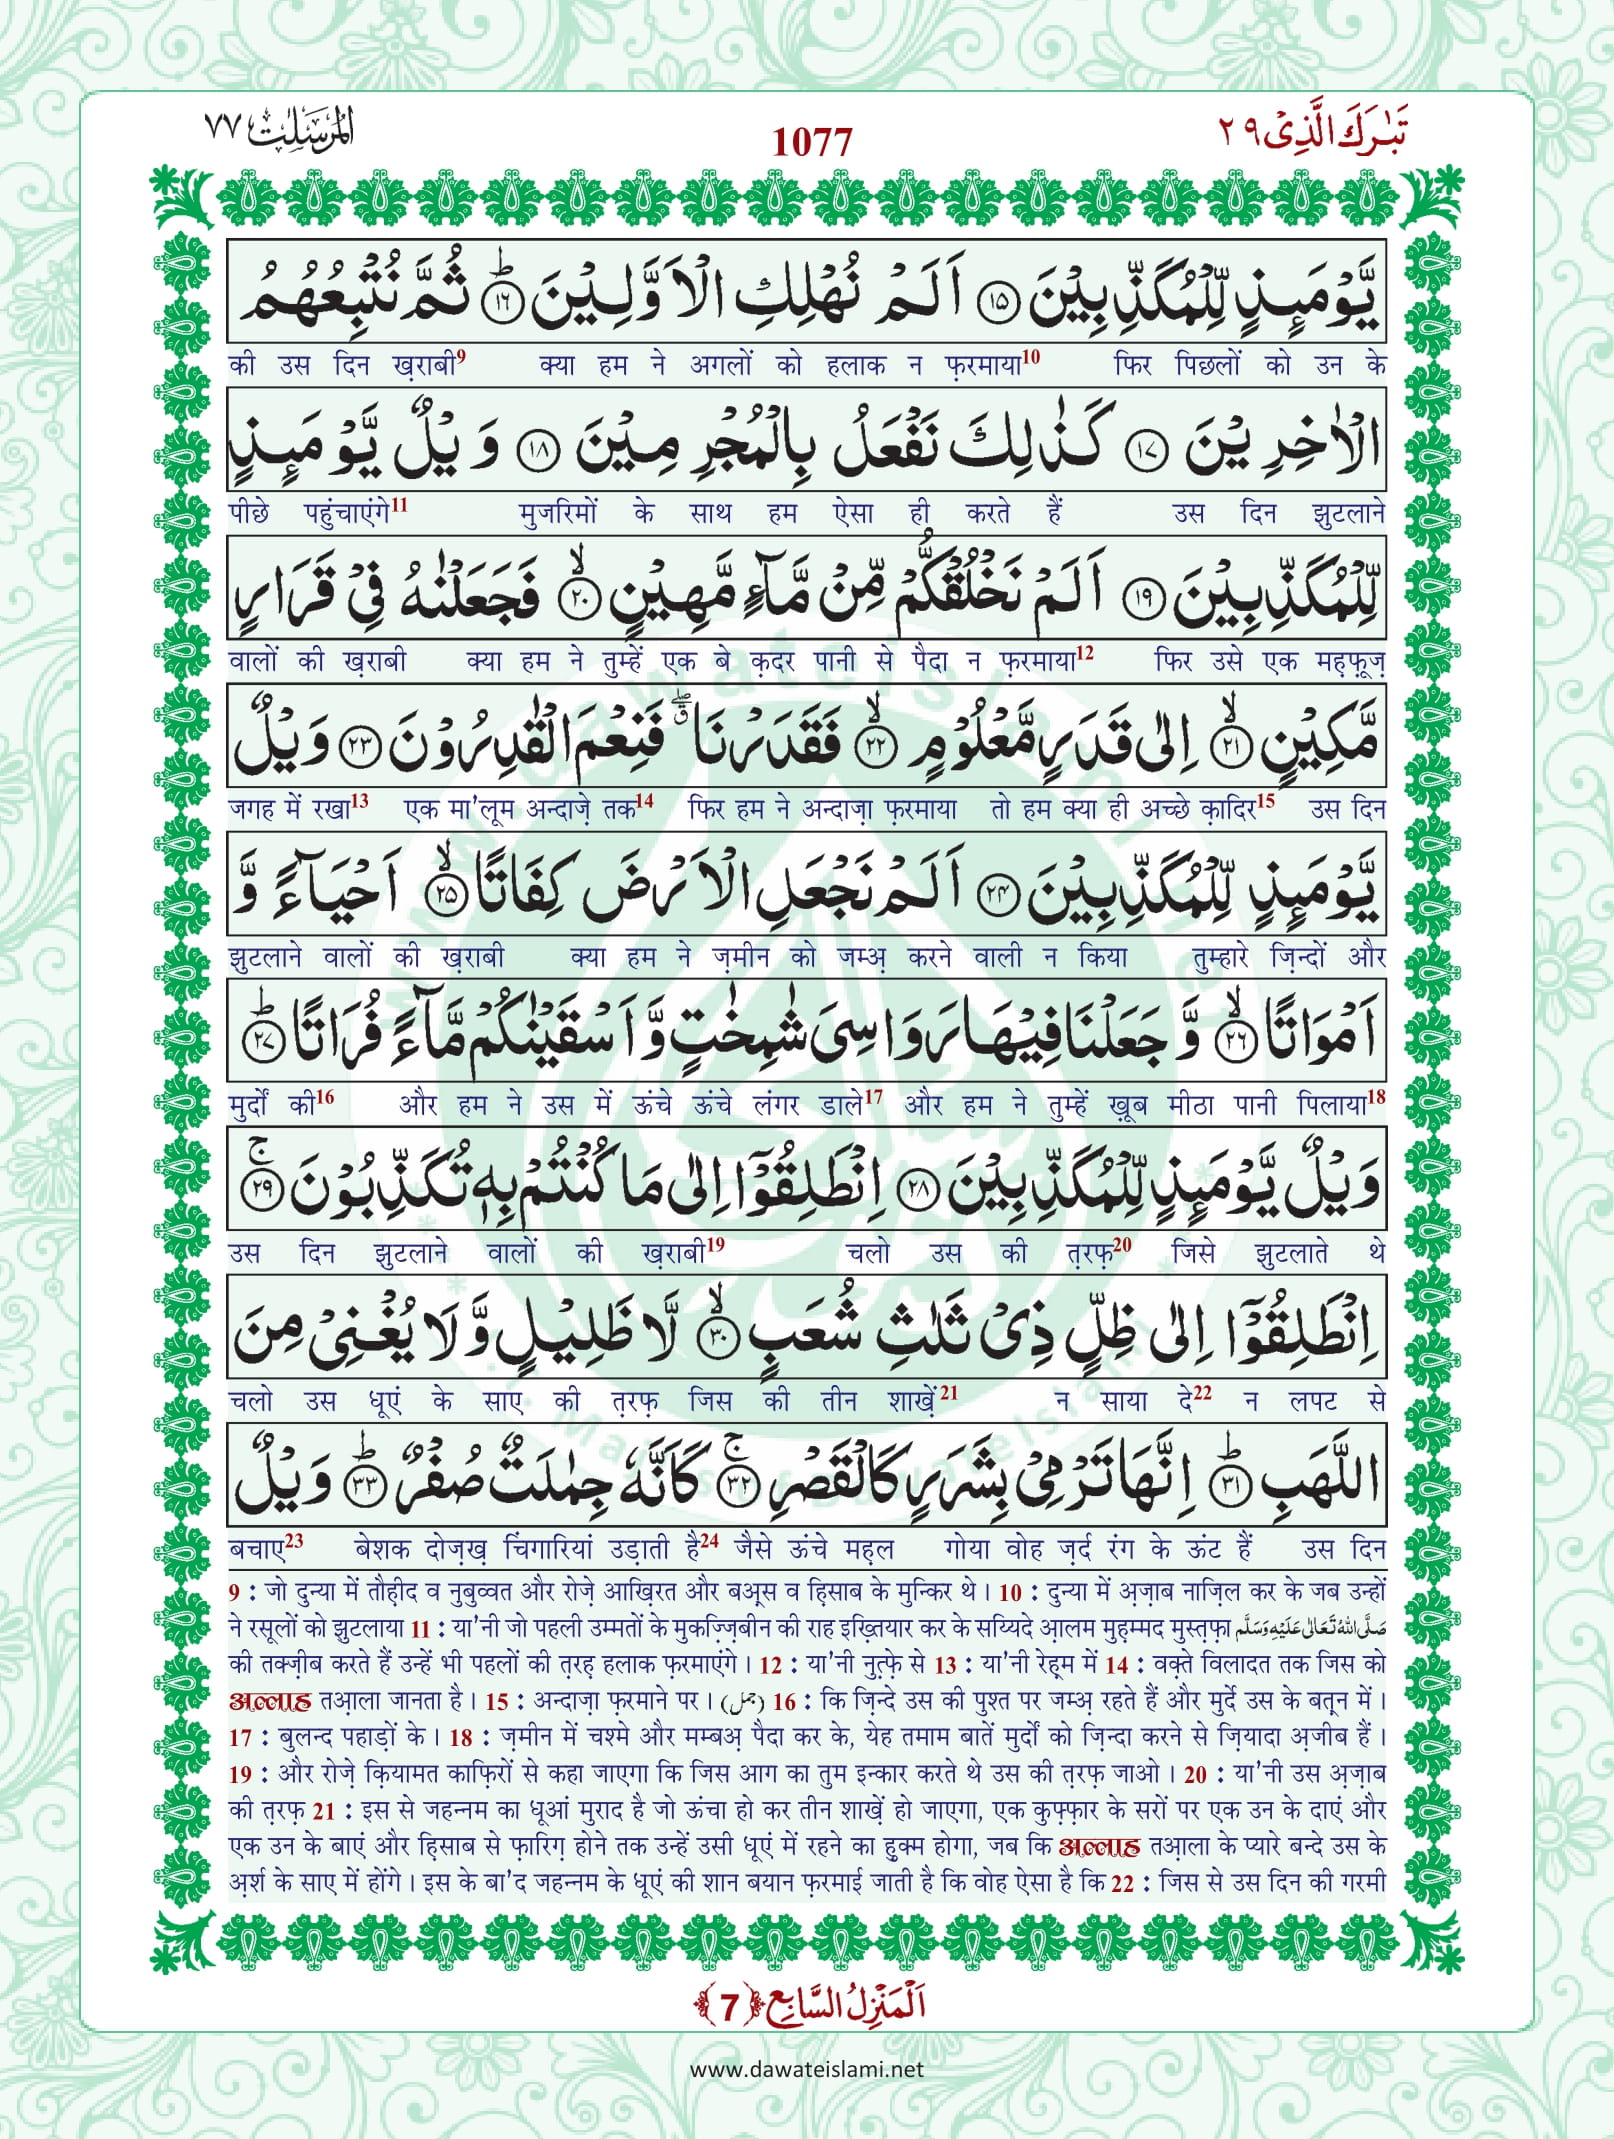 تَبٰرَكَ الَّذِیْ ٢٩
1077
الْمُرْسَلٰت ٧٧
یَّوْمَىِٕذٍ لِّلْمُكَذِّبِیْنَ ﴿١٥﴾ اَلَمْ نُهْلِكِ الْاَوَّلِیْنَ ؕ﴿١٦﴾ ثُمَّ نُتْبِعُهُمُ
की उस दिन ख़राबी9 क्या हम ने अगलों को हलाक न फ़रमाया10 फिर पिछलों को उन के
الْاٰخِرِیْنَ ﴿١٧﴾ كَذٰلِكَ نَفْعَلُ بِالْمُجْرِمِیْنَ ﴿١٨﴾ وَیْلٌ یَّوْمَىِٕذٍ
पीछे पहुंचाएंगे11 मुजरिमों के साथ हम ऐसा ही करते हैं उस दिन झुटलाने
لِّلْمُكَذِّبِیْنَ ﴿١٩﴾ اَلَمْ نَخْلُقْكُّمْ مِّنْ مَّآءٍ مَّهِیْنٍ ۙ﴿٢٠﴾ فَجَعَلْنٰهُ فِیْ قَرَارٍ
वालों की ख़राबी क्या हम ने तुम्हें एक बे क़दर पानी से पैदा न फ़रमाया12 फिर उसे एक मह़फ़ूज़
مَّكِیْنٍ ۙ﴿٢١﴾ اِلٰى قَدَرٍ مَّعْلُوْمٍ ۙ﴿٢٢﴾ فَقَدَرْنَا ۖۗ فَنِعْمَ الْقٰدِرُوْنَ ﴿٢٣﴾ وَیْلٌ
जगह में रखा13 एक मा’लूम अन्दाज़े तक14 फिर हम ने अन्दाज़ा फ़रमाया तो हम क्या ही अच्छे क़ादिर15 उस दिन
یَّوْمَىِٕذٍ لِّلْمُكَذِّبِیْنَ ﴿٢٤﴾ اَلَمْ نَجْعَلِ الْاَرْضَ كِفَاتًا ۙ﴿٢٥﴾ اَحْیَآءً وَّ
झुटलाने वालों की ख़राबी क्या हम ने ज़मीन को जम्अ़ करने वाली न किया तुम्हारे ज़िन्दों और
اَمْوَاتًا ۙ﴿٢٦﴾ وَّ جَعَلْنَا فِیْهَا رَوَاسِیَ شٰمِخٰتٍ وَّ اَسْقَیْنٰكُمْ مَّآءً فُرَاتًا ؕ﴿٢٧﴾
मुर्दों की16 और हम ने उस में ऊंचे ऊंचे लंगर डाले17 और हम ने तुम्हें ख़ूब मीठा पानी पिलाया18
وَیْلٌ یَّوْمَىِٕذٍ لِّلْمُكَذِّبِیْنَ ﴿٢٨﴾ اِنْطَلِقُوْۤا اِلٰى مَا كُنْتُمْ بِهٖ تُكَذِّبُوْنَ ۚ﴿٢٩﴾
उस दिन झुटलाने वालों की ख़राबी19 चलो उस की त़रफ़20 जिसे झुटलाते थे
اِنْطَلِقُوْۤا اِلٰى ظِلٍّ ذِیْ ثَلٰثِ شُعَبٍ ۙ﴿٣٠﴾ لَّا ظَلِیْلٍ وَّ لَا یُغْنِیْ مِنَ
चलो उस धूएं के साए की त़रफ़ जिस की तीन शाख़ें21 न साया दे22 न लपट से
اللَّهَبِ ؕ﴿٣١﴾ اِنَّهَا تَرْمِیْ بِشَرَرٍ كَالْقَصْرِ ۚ﴿٣٢﴾ كَاَنَّهٗ جِمٰلَتٌ صُفْرٌ ؕ﴿٣٣﴾ وَیْلٌ
बचाए23 बेशक दोज़ख़ चिंगारियां उड़ाती है24 जैसे ऊंचे मह़ल गोया वोह ज़र्द रंग के ऊंट हैं उस दिन
9 : जो दुन्या में तौह़ीद व नुबुव्वत और रोज़े आख़िरत और बअ्स व ह़िसाब के मुन्किर थे। 10 : दुन्या में अ़ज़ाब नाज़िल कर के जब उन्हों
ने रसूलों को झुटलाया 11 : या’नी जो पहली उम्मतों के मुकज़्ज़िबीन की राह इख़्तियार कर के सय्यिदे आ़लम मुह़म्मद मुस्त़फ़ा صَلَّى اللهُ تَعَالٰى عَلَيْهِ وَسَلَّم
की तक्ज़ीब करते हैं उन्हें भी पहलों की त़रह़ हलाक फ़रमाएंगे। 12 : या’नी नुत़्फ़े से 13 : या’नी रेह़्म में 14 : वक़्ते विलादत तक जिस को
अल्लाह तआ़ला जानता है। 15 : अन्दाज़ा फ़रमाने पर। (جمل) 16 : कि ज़िन्दे उस की पुश्त पर जम्अ़ रहते हैं और मुर्दे उस के बत़्न में।
17 : बुलन्द पहाड़ों के। 18 : ज़मीन में चश्मे और मम्बअ़ पैदा कर के, येह तमाम बातें मुर्दों को ज़िन्दा करने से ज़ियादा अ़जीब हैं।
19 : और रोज़े क़ियामत काफ़िरों से कहा जाएगा कि जिस आग का तुम इन्कार करते थे उस की त़रफ़ जाओ। 20 : या’नी उस अ़ज़ाब
की त़रफ़ 21 : इस से जहन्नम का धूआं मुराद है जो ऊंचा हो कर तीन शाख़ें हो जाएगा, एक कुफ़्फ़ार के सरों पर एक उन के दाएं और
एक उन के बाएं और ह़िसाब से फ़ारिग़ होने तक उन्हें उसी धूएं में रहने का हुक्म होगा, जब कि अल्लाह तआ़ला के प्यारे बन्दे उस के
अ़र्श के साए में होंगे। इस के बा’द जहन्नम के धूएं की शान बयान फ़रमाई जाती है कि वोह ऐसा है कि 22 : जिस से उस दिन की गरमी
اَلْمَنْزِلُ السَّابِع ﴿7﴾
www.dawateislami.net